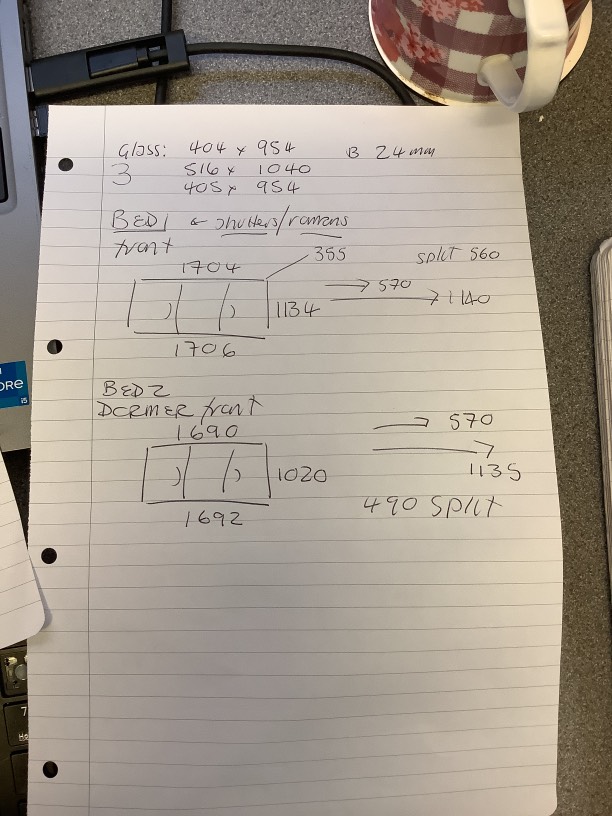 Glass: 404 x 954 B 24mm
3 516 x 1040
405 x 954
BED1 & shutters/romans
front
355
split 560
1704
570
1134
1140
1706
BED2
DORMER front
570
1690
1020
1135
490 SPLIT
1692
ORe
i5
7